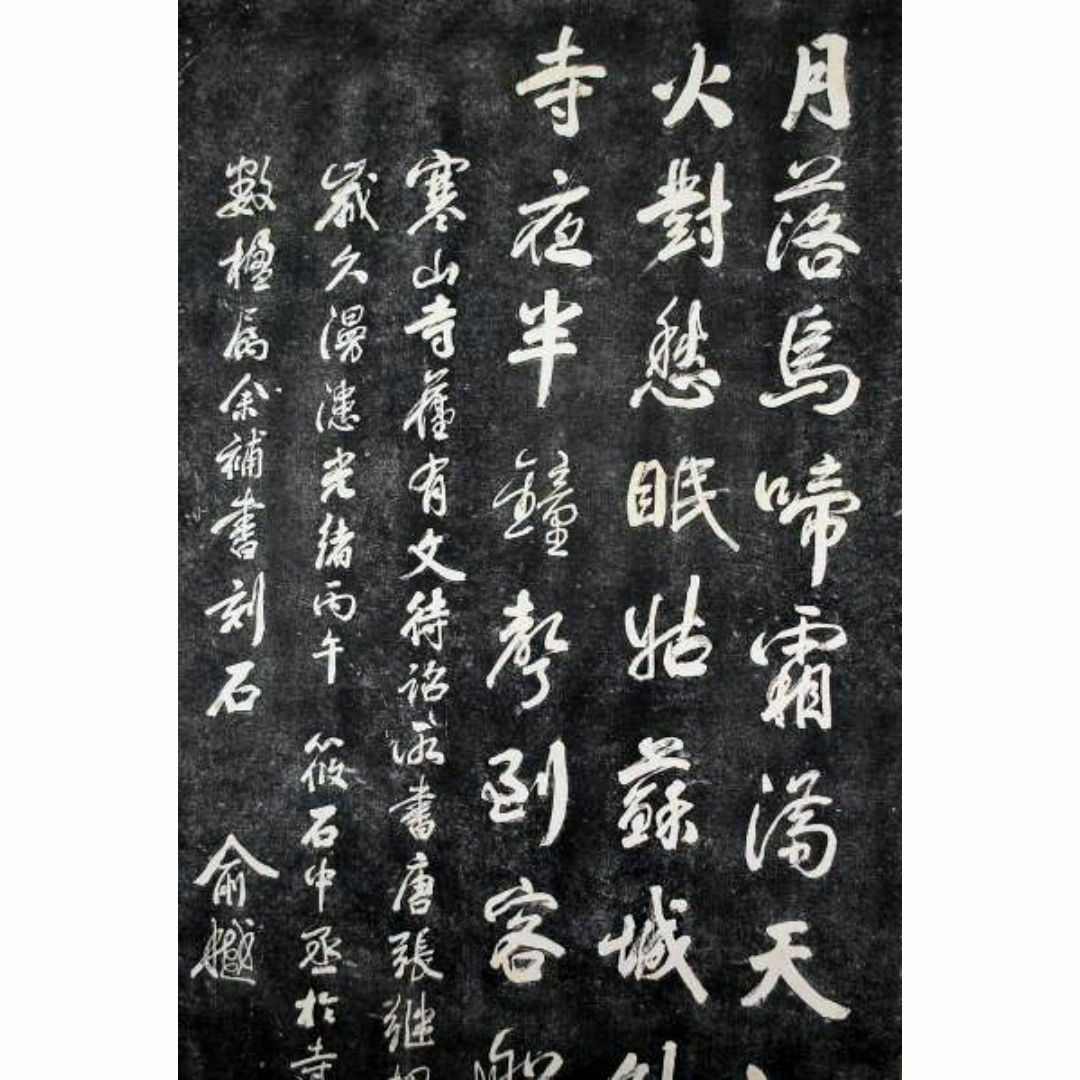 月落烏啼霜滿天
火對愁眠姑蘇城外
寺夜半鐘聲到客船
寒山寺舊有文待詔所書唐張繼楓
歲久漫漶光緒丙午筱石中丞於寺
數楹屬余補書刻石俞樾